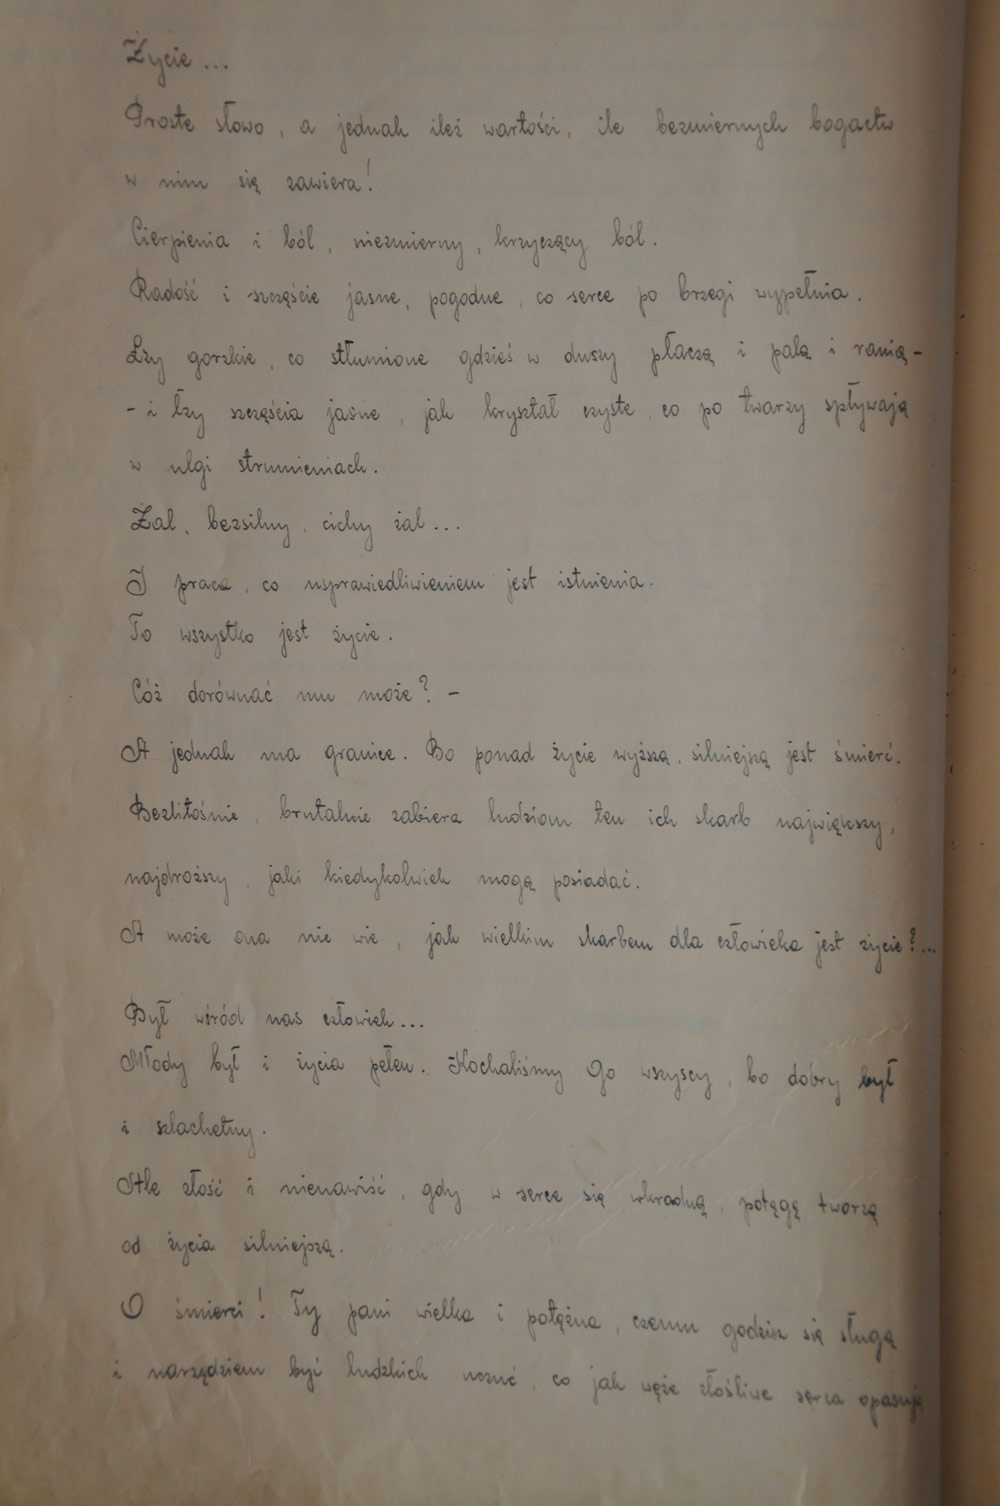 Życie...
Proste słowo, a jednak ileż wartości, ile bezmiernych bogactw
w nim się zawiera!
Cierpienia i ból, niezmierny, krzyczący ból.
Radość i szczęście jasne, pogodne, co serce po brzegi wypełnia.
Łzy gorzkie, co stłumione gdzieś w duszy płaczą i palą i ranią -
- i łzy szczęścia jasne, jak kryształ czyste, co po twarzy spływają
w ulgi strumieniach.
Żal, bezsilny, cichy żal...
I praca, co usprawiedliwieniem jest istnienia.
To wszystko jest życie.
Cóż dorównać mu może? -
A jednak ma granice. Bo ponad życie wyższą, silniejszą jest śmierć.
Bezlitośnie, brutalnie zabiera ludziom ten ich skarb największy,
najdroższy, jaki kiedykolwiek mogą posiadać.
A może ona nie wie, jak wielkim skarbem dla człowieka jest życie?...
Był wśród nas człowiek...
Młody był i życia pełen. Kochaliśmy Go wszyscy, bo dobry był
i szlachetny.
Ale złość i nienawiść, gdy w serce się wkradną, potęgę tworzą
od życia silniejszą.
O śmierci! Ty pani wielka i potężna, czemu godzisz się sługą
i narzędziem być ludzkich uczuć, co jak węże złośliwe serca opasują